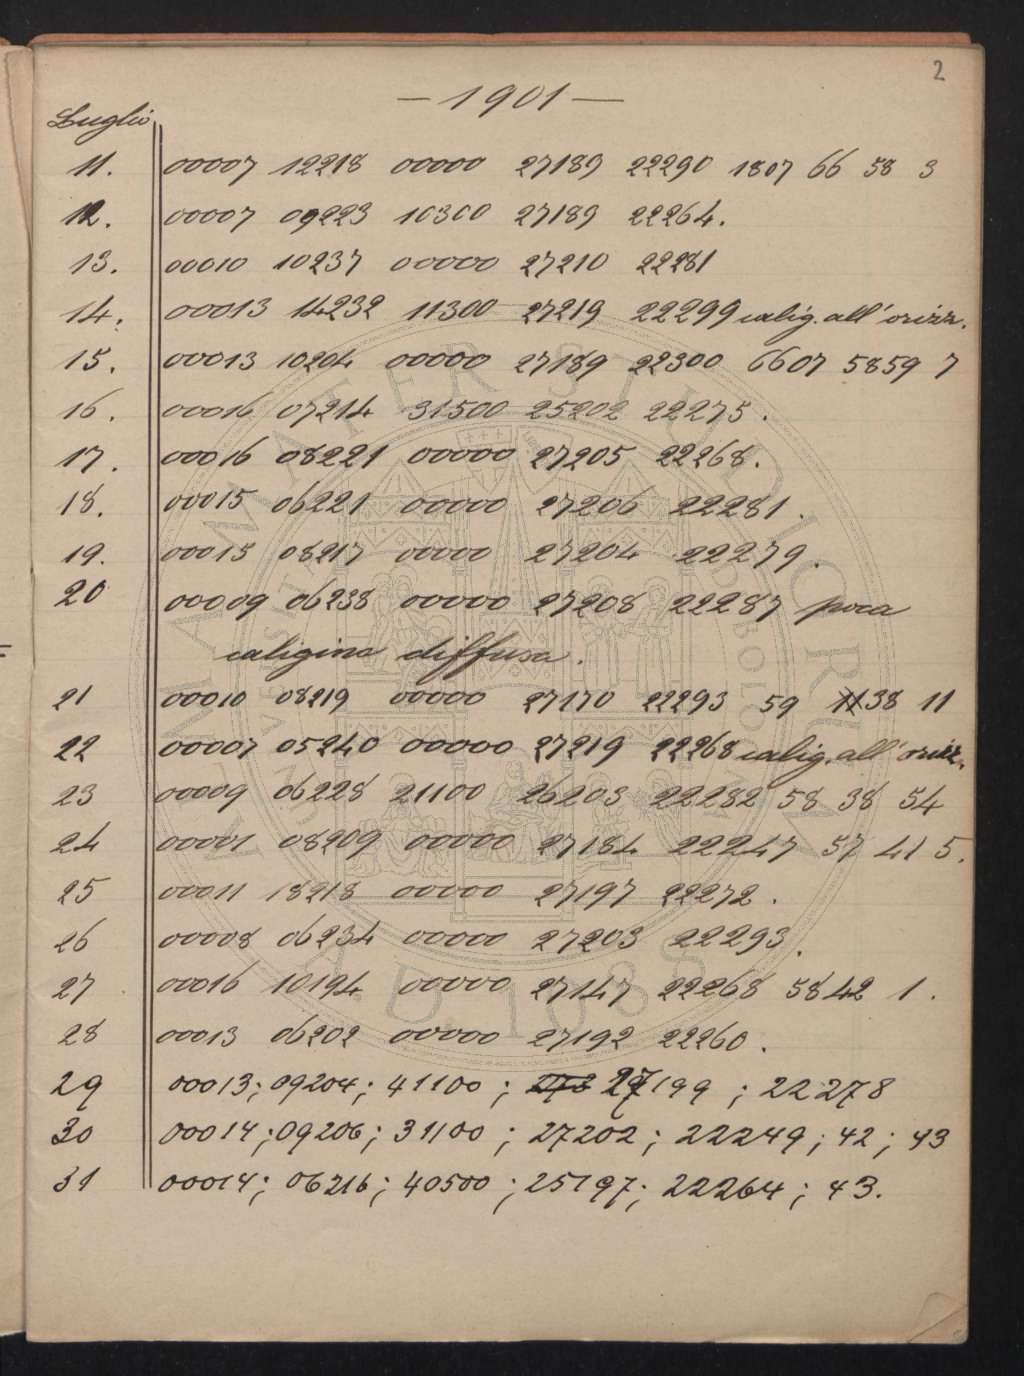 2
— 1901 —
Luglio
11. 00007 12218 00000 27189 22290 1807 66 58 3
12. 00007 09223 10300 27189 22264.
13. 00010 10237 00000 27210 22281
14. 00013 14232 11300 27219 22299 calig. all' orizz.
15. 00013 10204 00000 27189 22300 6607 5859 7
16. 00016 07214 31500 25202 22275.
17. 00016 08221 00000 27205 22268.
18. 00015 06221 00000 27206 22281.
19. 00015 08217 00000 27204 22279.
20 00009 06238 00000 27208 22287 poca
caligine diffusa.
21 00010 08219 00000 27170 22293 59 38 11
22 00007 05240 00000 27219 22268 calig. all' orizz.
23 00009 06228 21100 26203 22282 58 38 54
24 00001 08209 00000 27184 22247 57 41 5.
25 00011 18218 00000 27197 22272.
26 00008 06234 00000 27203 22293.
27 00016 10194 00000 27147 22268 58 42 1.
28 00013 06202 00000 27192 22260.
29 00013; 09204; 41100; 27199; 22278
30 00014; 09206; 31100; 27202; 22249; 42; 43
31 00014; 06216; 40500; 25197; 22264; 43.